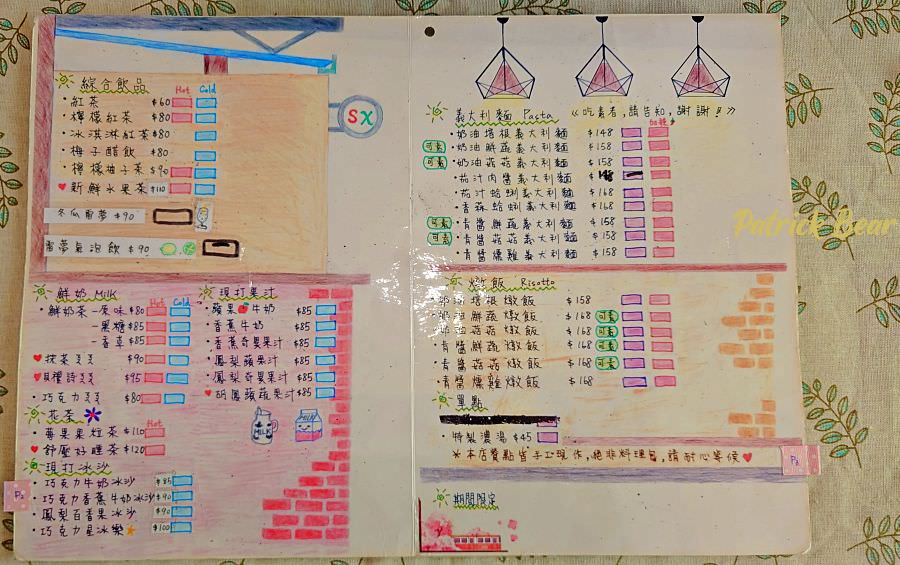 綜合飲品 Hot Cold
・紅茶 $60
・檸檬紅茶 $80
・冰淇淋紅茶 $80
・梅子醋飲 $80
・檸檬柚子茶 $90
♥新鮮水果茶 $110
冬瓜雷夢 $90
雷夢氣泡飲 $90
SX
鮮奶 Milk Hot Cold
・鮮奶茶-原味 $80
-黑糖 $85
-香草 $85
♥抹茶ㄡㄡ $90
$95
・巧克力ㄡㄡ $80
花茶 Hot
・莓果果粒茶 $110
♥舒壓好睡茶 $120
現打冰沙
・巧克力牛奶冰沙 $85
・巧克力香蕉牛奶冰沙 $90
・鳳梨百香果冰沙 $90
・巧克力星冰樂 $100
P2
現打果汁 Cold
・蘋果牛奶 $85
・香蕉牛奶 $85
・香蕉奇異果汁 $85
・鳳梨蘋果汁 $85
・鳳梨奇異果汁 $85
♥胡蘿蔔蔬果汁 $85
MILK
MILK
義大利麵 Pasta 《吃素者,請告知,謝謝!!》
・奶油培根義大利麵 $148
可素 ・奶油鮮蔬義大利麵 $158
可素 ・奶油菇菇義大利麵 $158
・茄汁肉醬義大利麵
・茄汁蛤蜊義大利麵 $168
・香蒜蛤蜊義大利麵 $168
可素 ・青醬鮮蔬義大利麵 $158
可素 ・青醬菇菇義大利麵 $158
・青醬燻雞義大利麵 $158
Patrick Bear
燉飯 Risotto
奶油培根燉飯 $158
奶油鮮蔬燉飯 $168 可素
奶油菇菇燉飯 $168 可素
青醬鮮蔬燉飯 $168 可素
青醬菇菇燉飯 $168 可素
青醬燻雞燉飯 $168
單點
・特製濃湯 $45
*本店餐點皆手工現作,絕非料理包,請耐心等候♥
P3
期間限定